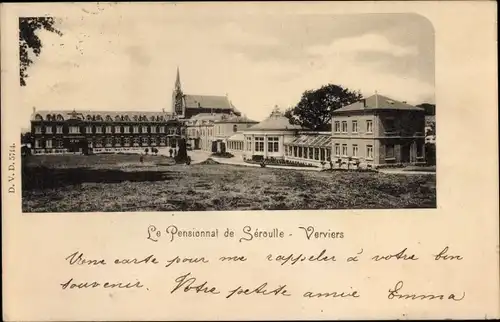 D. V. D. 5714.
Le Pensionnat de Séroulle - Verviers
Une carte pour me rappeler à votre bon
souvenir. Votre petite amie Emma